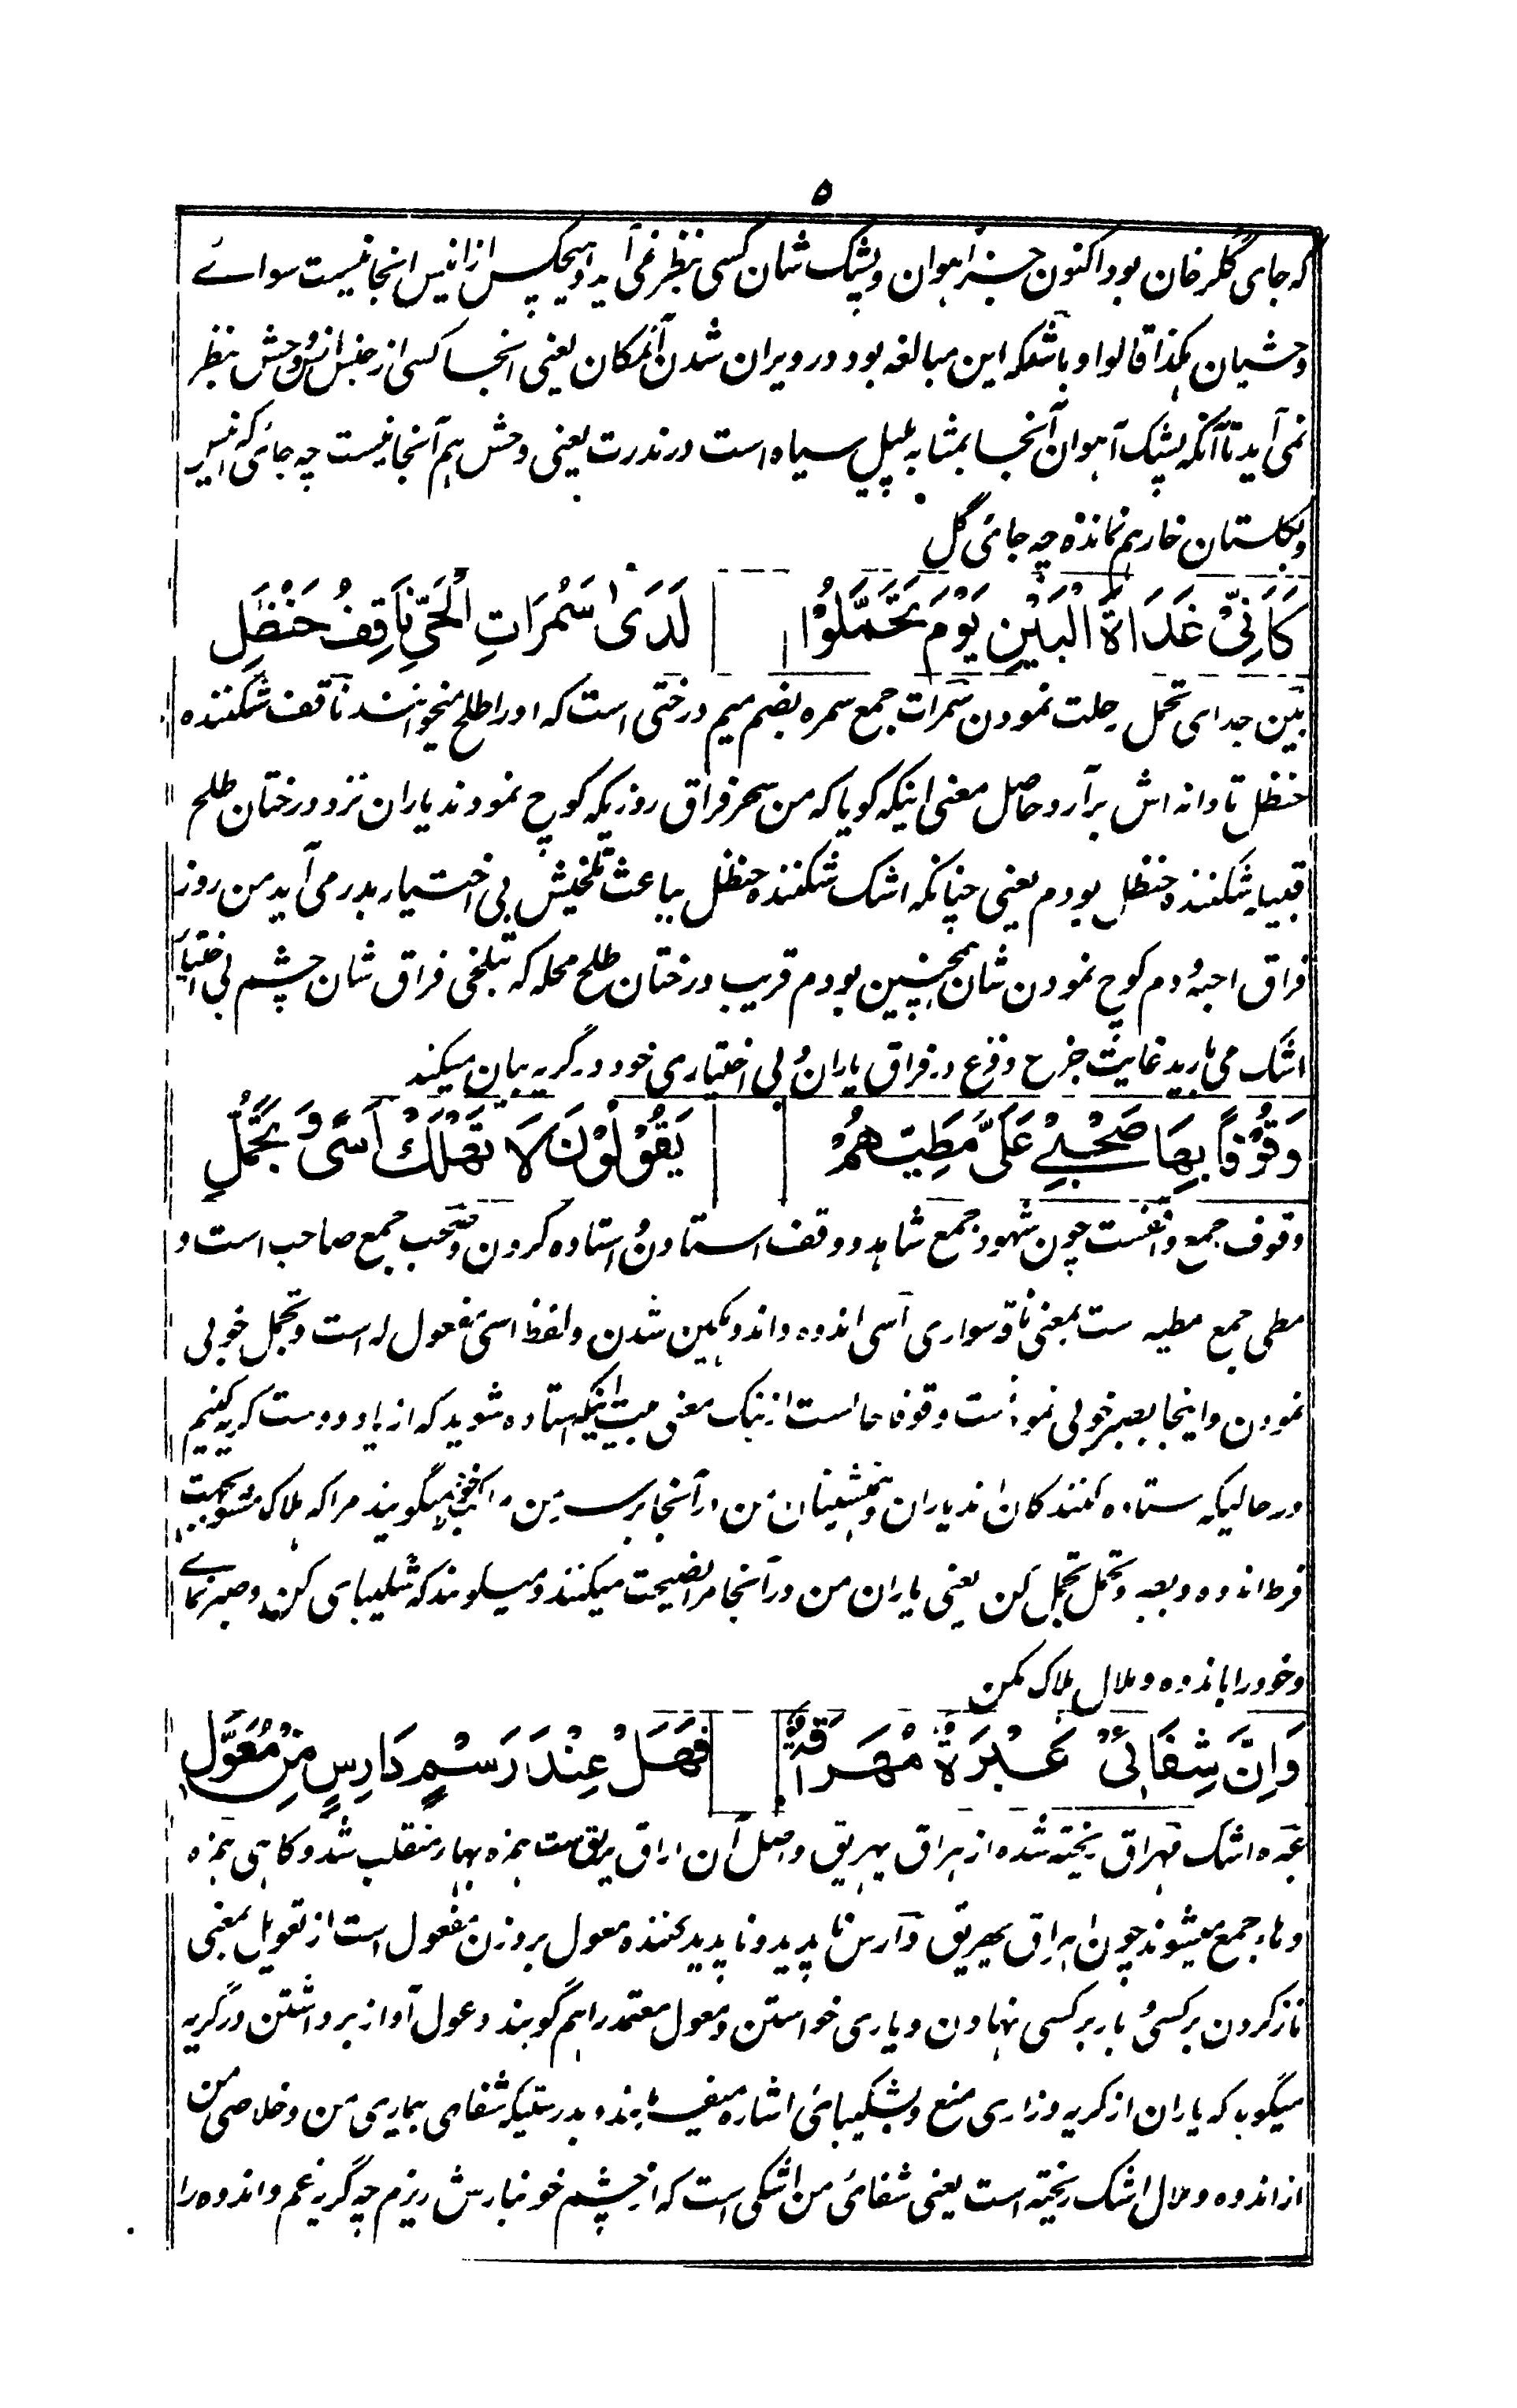 ۵
که جای گلرخان بود اکنون جز آهوان و پشک شان کسی بنظر نمی آید و هیچکس از انیس انجا نیست سوائے
وحشیان هکذا قالوا و باشد که این مبالغه بود در ویران شدن آنمکان یعنی آنجا کسی از جنس انس و وحش بنظر
نمی آید تا آنکه پشک آهوان آنجا بمثابه پلپل سیاه است در ندرت یعنی وحش هم آنجا نیست چه جائ که انیس
و بگلستان خار هم نمانده چه جائ گل
كَاَنِّيْ غَدَاةَ الْبَيْنِ يَوْمَ تَحَمَّلُوْا لَدَىٰ سَمُرَاتِ الْحَيِّ نَاقِفُ حَنْظَلِ
بین جدای تحمل رحلت نمودن سمرات جمع سمره بضم میم درختی است که او را طلح میخوانند ناقف شکننده
حنظل تا دانه اش برآرد حاصل معنی اینکه کویا که من سحر فراق روزیکه کوچ نمودند یاران نزد درختان طلح
قبیله شکننده حنظل بودم یعنی چنانکه اشک شکننده حنظل بباعث تلخیش بی اختیار بدر می آید من روز
فراق احبه و دم کوچ نمودن شان همچنین بودم قریب درختان طلح محله که بتلخی فراق شان چشم بی اختیار
اشک می بارید غایت جزع و فزع در فراق یاران و بی اختیاری خود در گریه بیان میکند
وَقُوْفًا بِهَا صَحْبِيْ عَلَيَّ مَطِيَّهُمْ يَقُوْلُوْنَ لَا تَهْلِكْ اَسًى وَّتَجَمَّلِ
وقوف جمع واقفست چون شهود جمع شاهد و وقف استادن و استاده کردن و صحب جمع صاحب است و
مطی جمع مطیه ست بمعنی ناقه سواری آسی اندوه و اندوهگین شدن و لفظ اسی مفعول له است و تجمل خوبی
نمودن و اینجا بصبر خوبی نمودنست وقوفا حال است از نبک معنی بیت اینکه استاده شوید که از یاد دوست کریه کنیم
در حالیکه ستاده کنندکان اند یاران و همنشینان من در آنجا بر سر من میگویند مرا که هلاک مشو بجهت
فرط اندوه و بصبر و تحمل تجمل کن یعنی یاران من در آنجا مرا نصیحت میکنند و میگویند که شکیبای کن و صبر نمائے
و خود را باندوه و ملال هلاک مکن
وَاِنَّ شِفَائِيْ عَبْرَةٌ مُهْرَاقَةٌ فَهَلْ عِنْدَ رَسْمٍ دَارِسٍ مِنْ مُعَوَّلِ
عبره اشک مهراق ریخته شده از هراق یهریق و اصل آن اراق یریق ست همزه بهار منقلب شد و کاهی همزه
و ها جمع میشوند چون اهراق یهریق دارس ناپدید و ناپدید کننده معول بر وزن مفعول است از تعویل بمعنی
ناز کردن بر کسی و بار بر کسی نهادن و یاری خواستن و معول معتمد را هم گویند و عول آواز برداشتن در گریه
میگوید که یاران از کریه و زاری منع و بشکیبائ اشاره میفرمایند و بدرستیکه شفای بیماری من و خلاصی من
از اندوه و ملال اشک ریخته است یعنی شفائ من اشکی است که از چشم خونبارش ریزم چه گریه غم و اندوه را